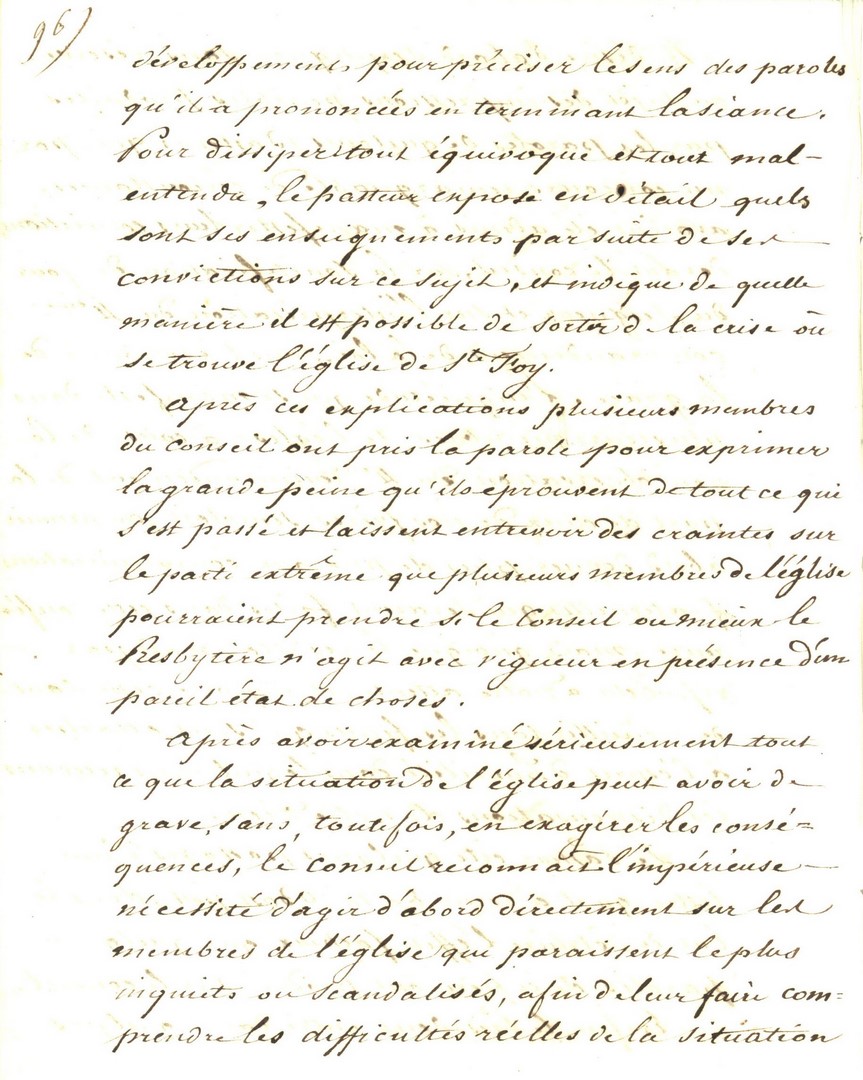 96)
développements pour préciser le sens des paroles
qu'il a prononcées en terminant la séance.
Pour dissiper tout équivoque et tout mal-
entendu, le pasteur expose en détail quels
sont ses enseignements par suite de ses
convictions sur ce sujet, et indique de quelle
manière il est possible de sortir de la crise où
se trouve l'église de Ste Foy.
Après ces explications plusieurs membres
du conseil ont pris la parole pour exprimer
la grande peine qu'ils éprouvent de tout ce qui
s'est passé et laissent entrevoir des craintes sur
le parti extrême que plusieurs membres de l'église
pourraient prendre si le Conseil ou mieux le
Presbytère n'agit avec vigueur en présence d'un
pareil état de choses.
Après avoir examiné sérieusement tout
ce que la situation de l'église peut avoir de
grave, sans, toutefois, en exagérer les consé=
quences, le Conseil reconnait l'impérieuse
nécessité d'agir d'abord directement sur les
membres de l'église qui paraissent le plus
inquiets ou scandalisés, afin de leur faire com=
prendre les difficultés réelles de la situation